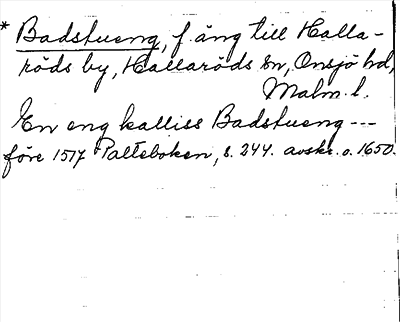 * Badstueng, f. äng till Halla-
röds by, Hallaröds sn, Onsjö hd,
Malm. l.
En eng kalliss Badstueng ---
före 1517 Palteboken, s. 244. avskr. o. 1650.